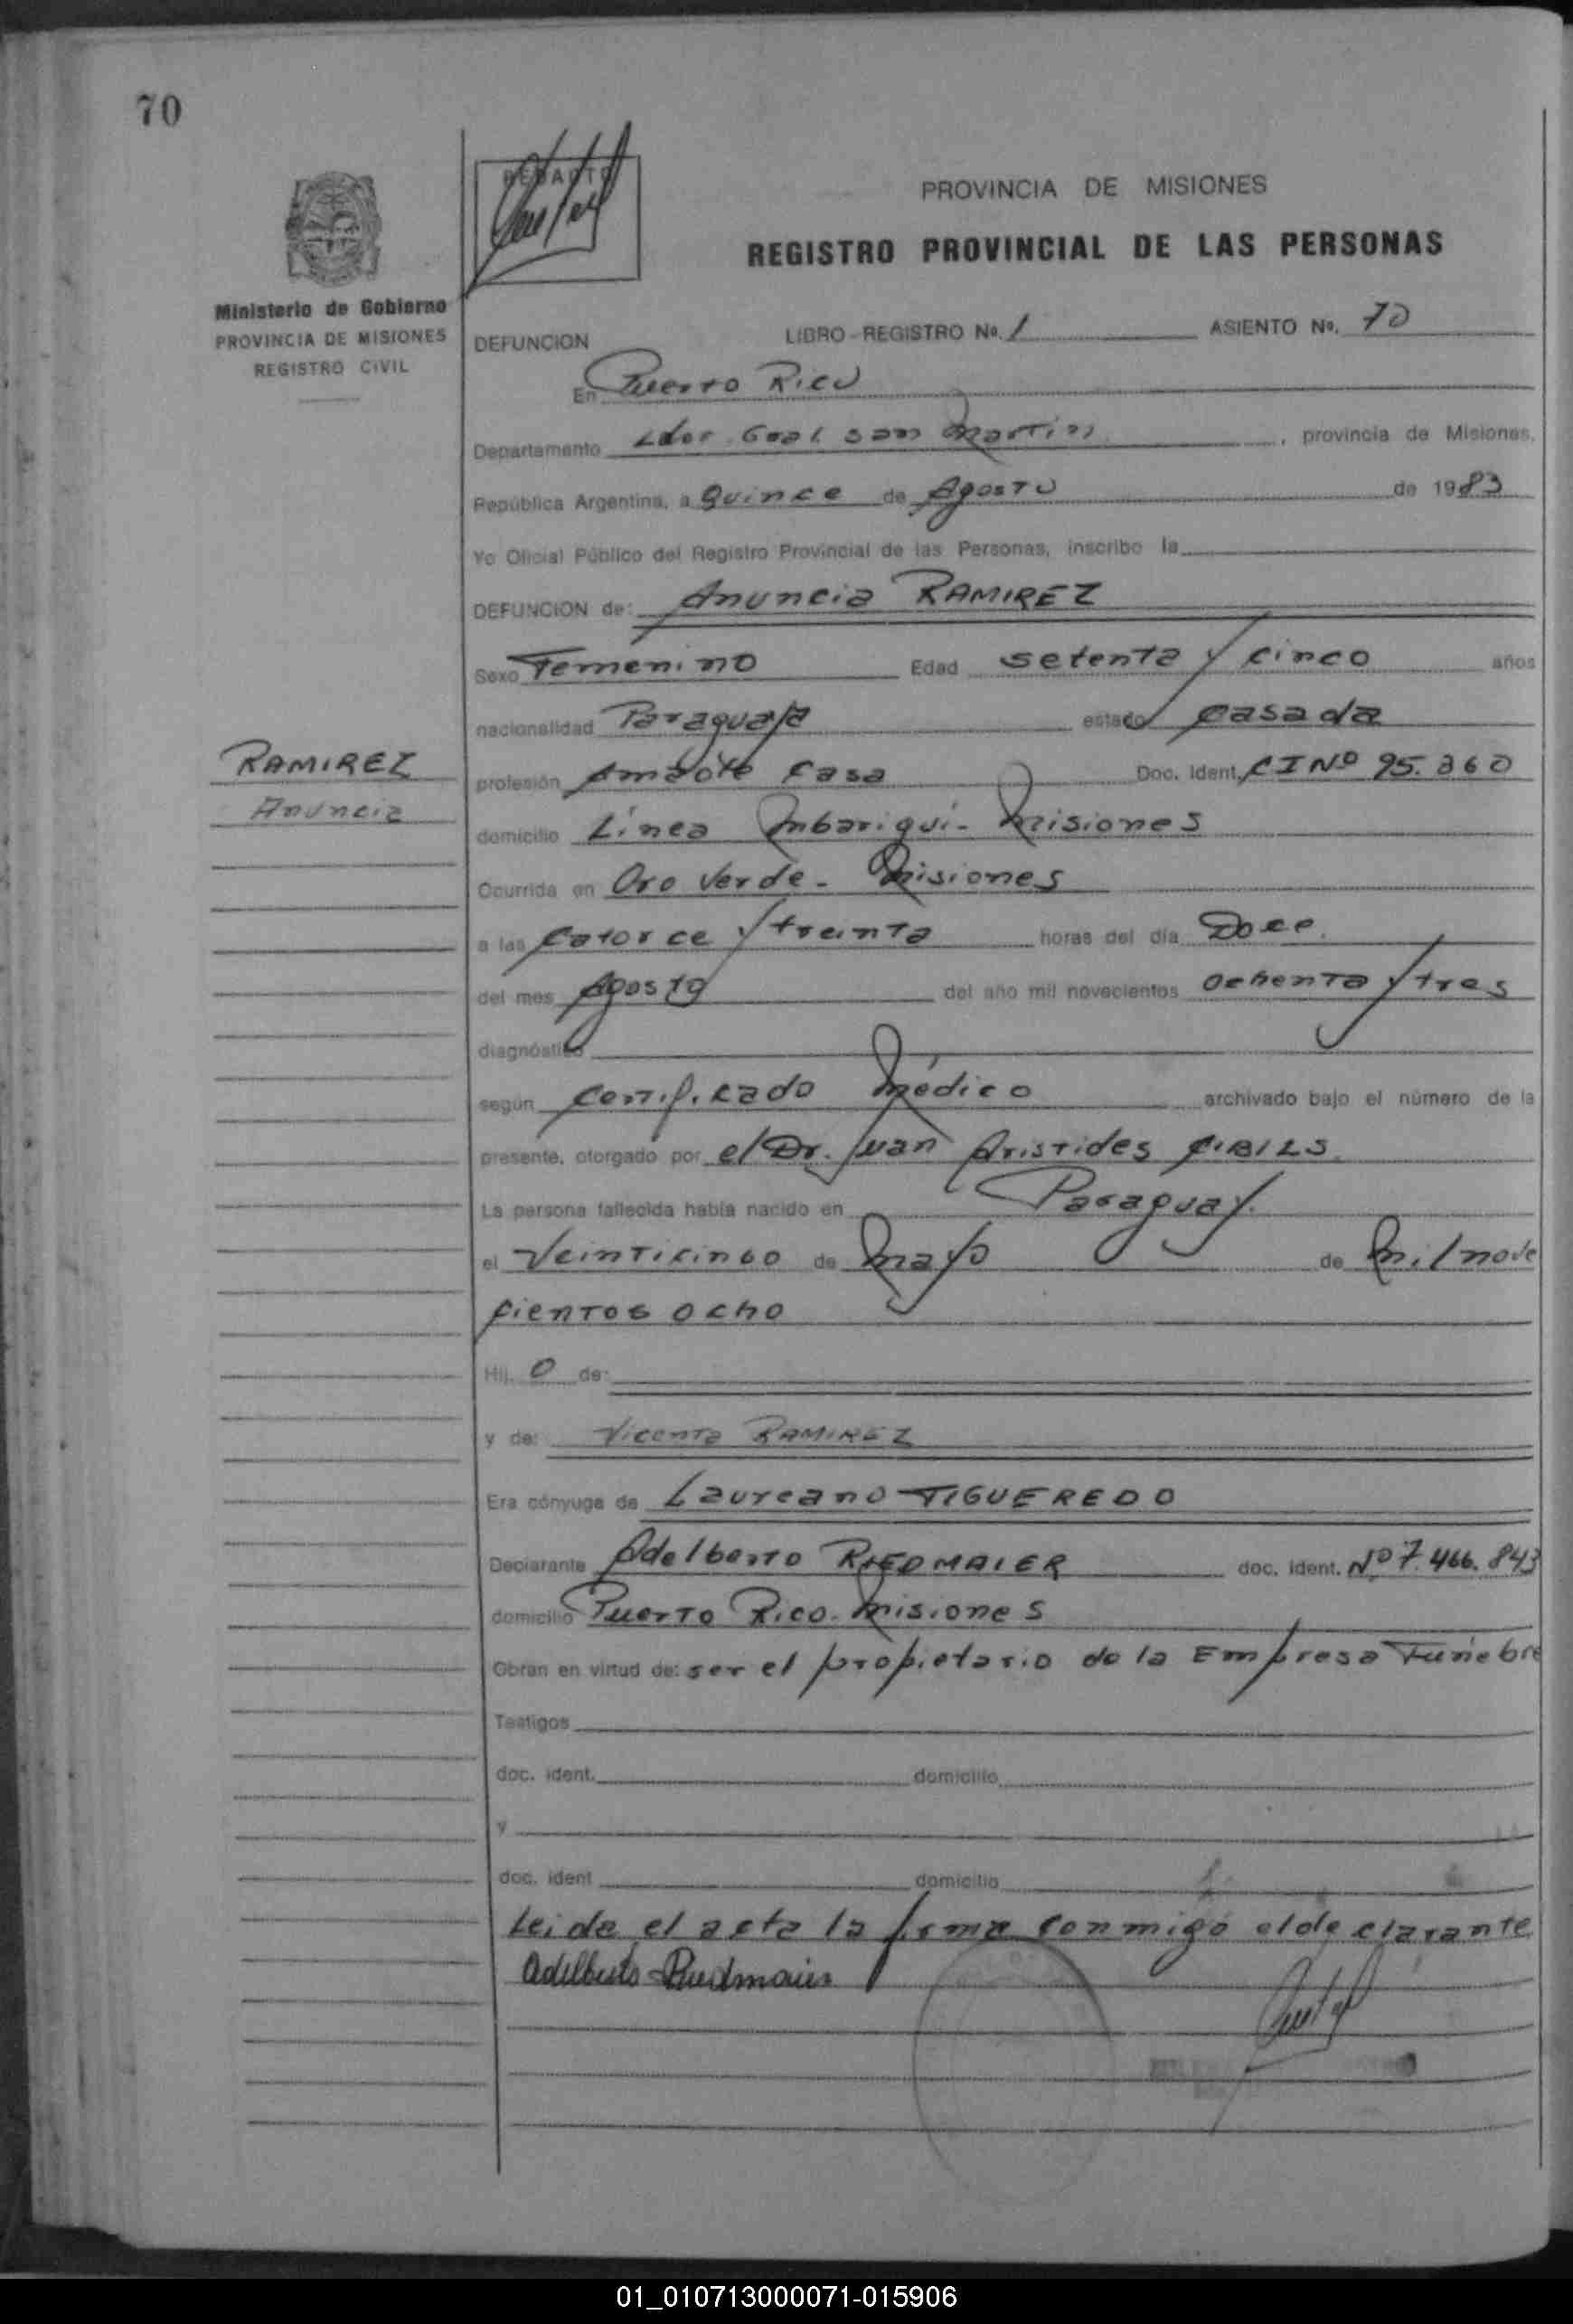 70
PROVINCIA DE MISIONES
REGISTRO PROVINCIAL DE LAS PERSONAS
Ministerio de Gobierno
PROVINCIA DE MISIONES
REGISTRO CIVIL
DEFUNCION LIBRO-REGISTRO No. 1 ASIENTO No. 70
En Puerto Rico
Departamento Ldor. Gral. San Martin, provincia de Misiones,
República Argentina, a Quince de Agosto de 1983
Yo Oficial Público del Registro Provincial de las Personas, inscribo la
DEFUNCION de: Anuncia RAMIREZ
Sexo Femenino Edad setenta y cinco años
nacionalidad Paraguaya estado Casada
RAMIREZ
Anuncia
profesión Ama de Casa Doc. Ident. CI Nº 95.360
domicilio Línea Mbariguí - Misiones
Ocurrida en Oro Verde - Misiones
a las Catorce y treinta horas del día Doce.
del mes Agosto del año mil novecientos ochenta y tres
diagnóstico
según Certificado Médico archivado bajo el número de la
presente, otorgado por el Dr. Juan Aristides CIBILS.
La persona fallecida había nacido en Paraguay.
el Veinticinco de Mayo de Mil nove
cientos ocho
Hij. o de:
y de: Vicenta RAMIREZ
Era cónyuge de Laureano FIGUEREDO
Declarante Adelberto RIEDMAIER doc. ident. Nº 7.466.843
domicilio Puerto Rico. Misiones
Obran en virtud de: ser el propietario de la Empresa Fúnebre
Testigos
doc. ident. domicilio
y
doc. ident domicilio
Leida el acta la firma conmigo el declarante
Adelberto Riedmaier
01_010713000071-015906